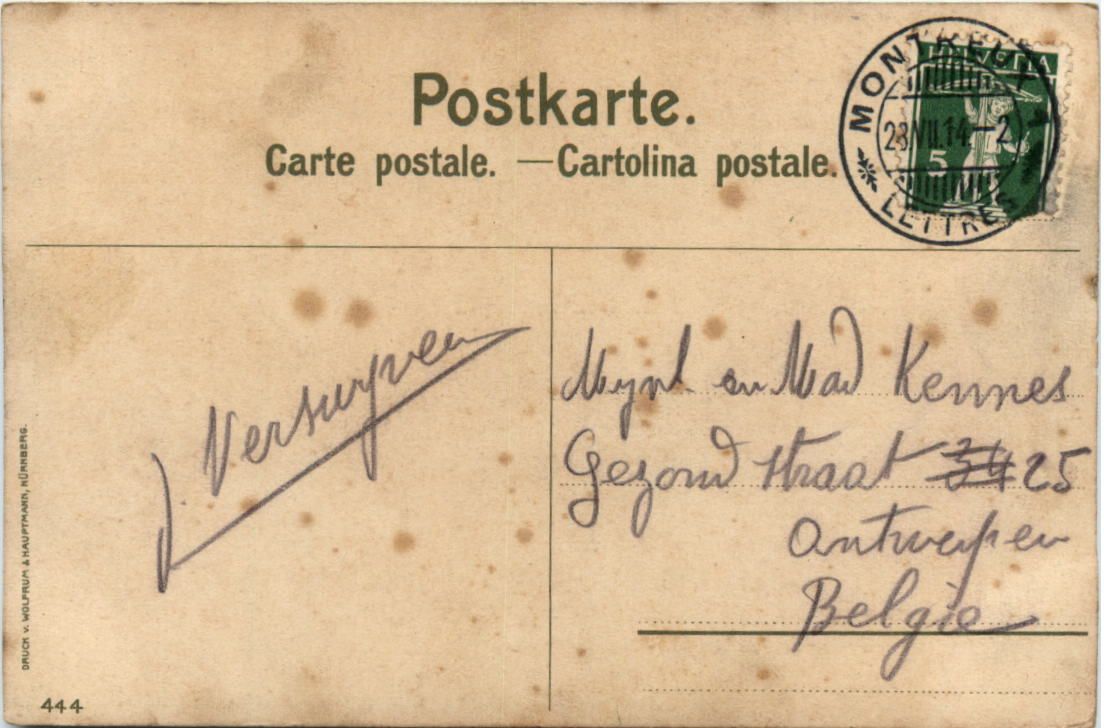 Postkarte.
Carte postale. — Cartolina postale.
MONTREUX
HELVETIA
23.VII.14-2
5
LETTRES
J. Versuypen
Mynh. en Mad Kennes
Gezond straat 34 25
Antwerpen
Belgie
DRUCK v. WOLFRUM & HAUPTMANN, NÜRNBERG.
444